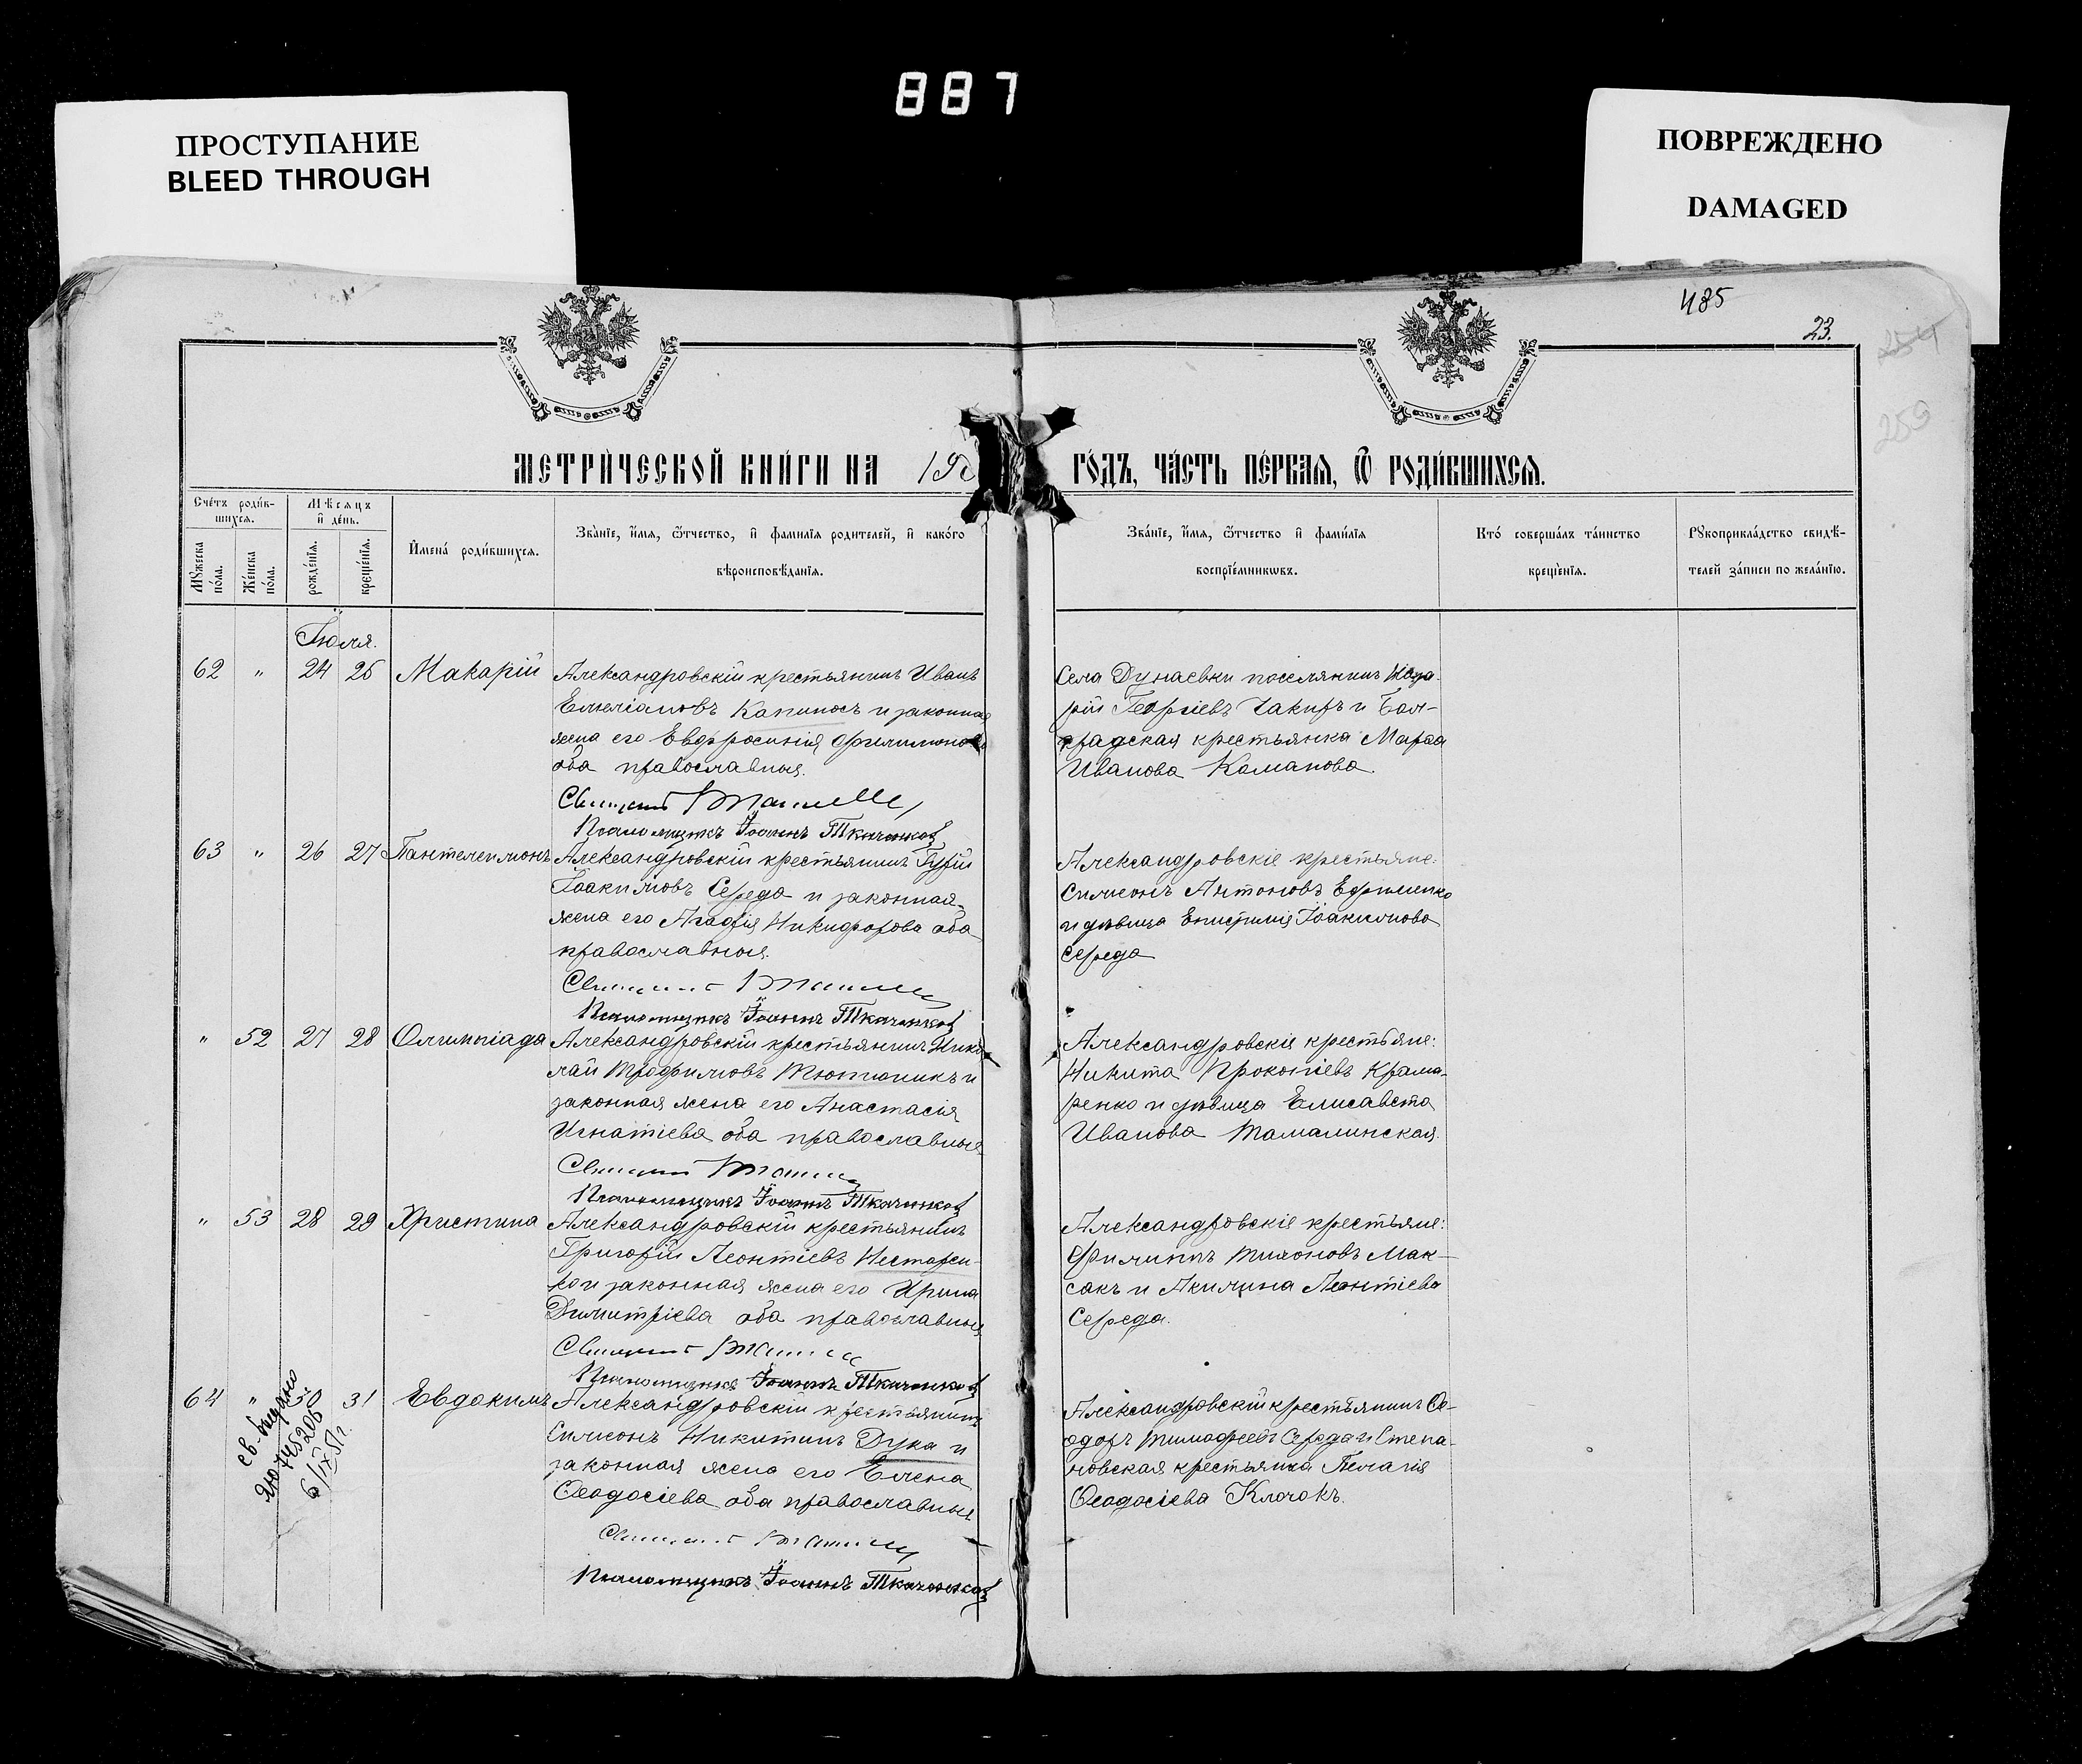 887
ПРОСТУПАНИЕ
BLEED THROUGH
ПОВРЕЖДЕНО
DAMAGED
485
23.
254
259
МЕТРИ́ЧЕСКОЙ КНИ́ГИ НА 190
ГО́ДЪ, ЧА́СТЬ ПЕ́РВАЯ, Ѿ РОДИ́ВШИХСЯ.
Сче́тъ роди́в-
шихся.
Мѣсяцъ
и҆ де́нь.
Мꙋжеска по́ла.
Же́нска по́ла.
рожде́нїя.
креще́нїя.
И҆мена́ роди́вшихся.
Зва́нїе, и҆́мя, ѻ҆́тчество, и҆ фами́лїя родителей, и҆ како́го
вѣроисповѣ́данїя.
Зва́нїе, и҆́мя, ѻ҆́тчество и҆ фами́лїя
воспрїе́мникѡвъ.
Кто́ соверша́лъ та́инство
креще́нїя.
Рꙋкоприкла́дство свидѣ́-
телей за́писи по жела́нїю.
Іюля.
62 " 24 25 Макарій
Александровскій крестьянинъ Иванъ
Емеліановъ Капиносъ и законная
жена его Евфросинія Филимонова
оба православные.
Псаломщикъ Іоаннъ Ткаченков
Села Дунаевки поселянинъ
рій Георгіевъ Чакиръ и Бол-
градская крестьянка Марѳа
Иванова Команова.
63 " 26 27 Пантелеимонъ
Александровскій крестьянинъ Гурій
Іоакимовъ Середа и законная
жена его Агафія Никифорова оба
православные.
Псаломщикъ Іоаннъ Ткаченков
Александровскіе крестьяне:
Симеонъ Антоновъ Ефименко
и дѣвица Епистимія Іоакимова
Середа
" 52 27 28 Олимпіада
Александровскій крестьянинъ Нико-
лай Трофимовъ Тютюникъ и
законная жена его Анастасія
Игнатіева оба православные
Псаломщикъ Іоаннъ Ткаченков
Александровскіе крестьяне:
Никита Прокопіевъ Крама-
ренко и дѣвица Елисавета
Иванова Томалинская.
" 53 28 29 Христина
Александровскій крестьянинъ
Григорій Леонтіевъ Нестерен-
ко и законная жена его Ирина
Димитріева оба православные
Псаломщикъ Іоаннъ Ткаченков
Александровскіе крестьяне:
Филиппъ Тихоновъ Мак-
сакъ и Акилина Леонтіева
Середа.
64 " 30 31 Евдокимъ
Александровскій крестьянинъ
Симеонъ Никитинъ Дука и
законная жена его Елена
Ѳеодосіева оба православные
Псаломщикъ Іоаннъ Ткаченков
Александровскій крестьянинъ Ѳе-
одоръ Тимофеевъ Середа и Степа-
новская крестьянка Пелагія
Ѳеодосіева Клочокъ.
св. выдано
745206